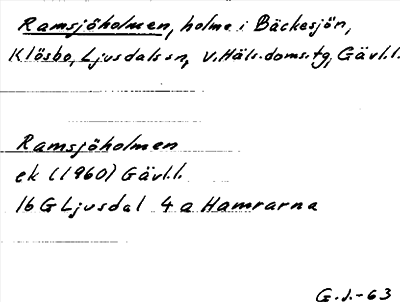 Ramsjöholmen, holme i Bäckesjön,
Klösbo, Ljusdals sn, V. Häls. doms. tg, Gävl. l.
Ramsjöholmen
ek (1960) Gävl. l.
16 G Ljusdal 4 a Hamrarna
G. J. - 63